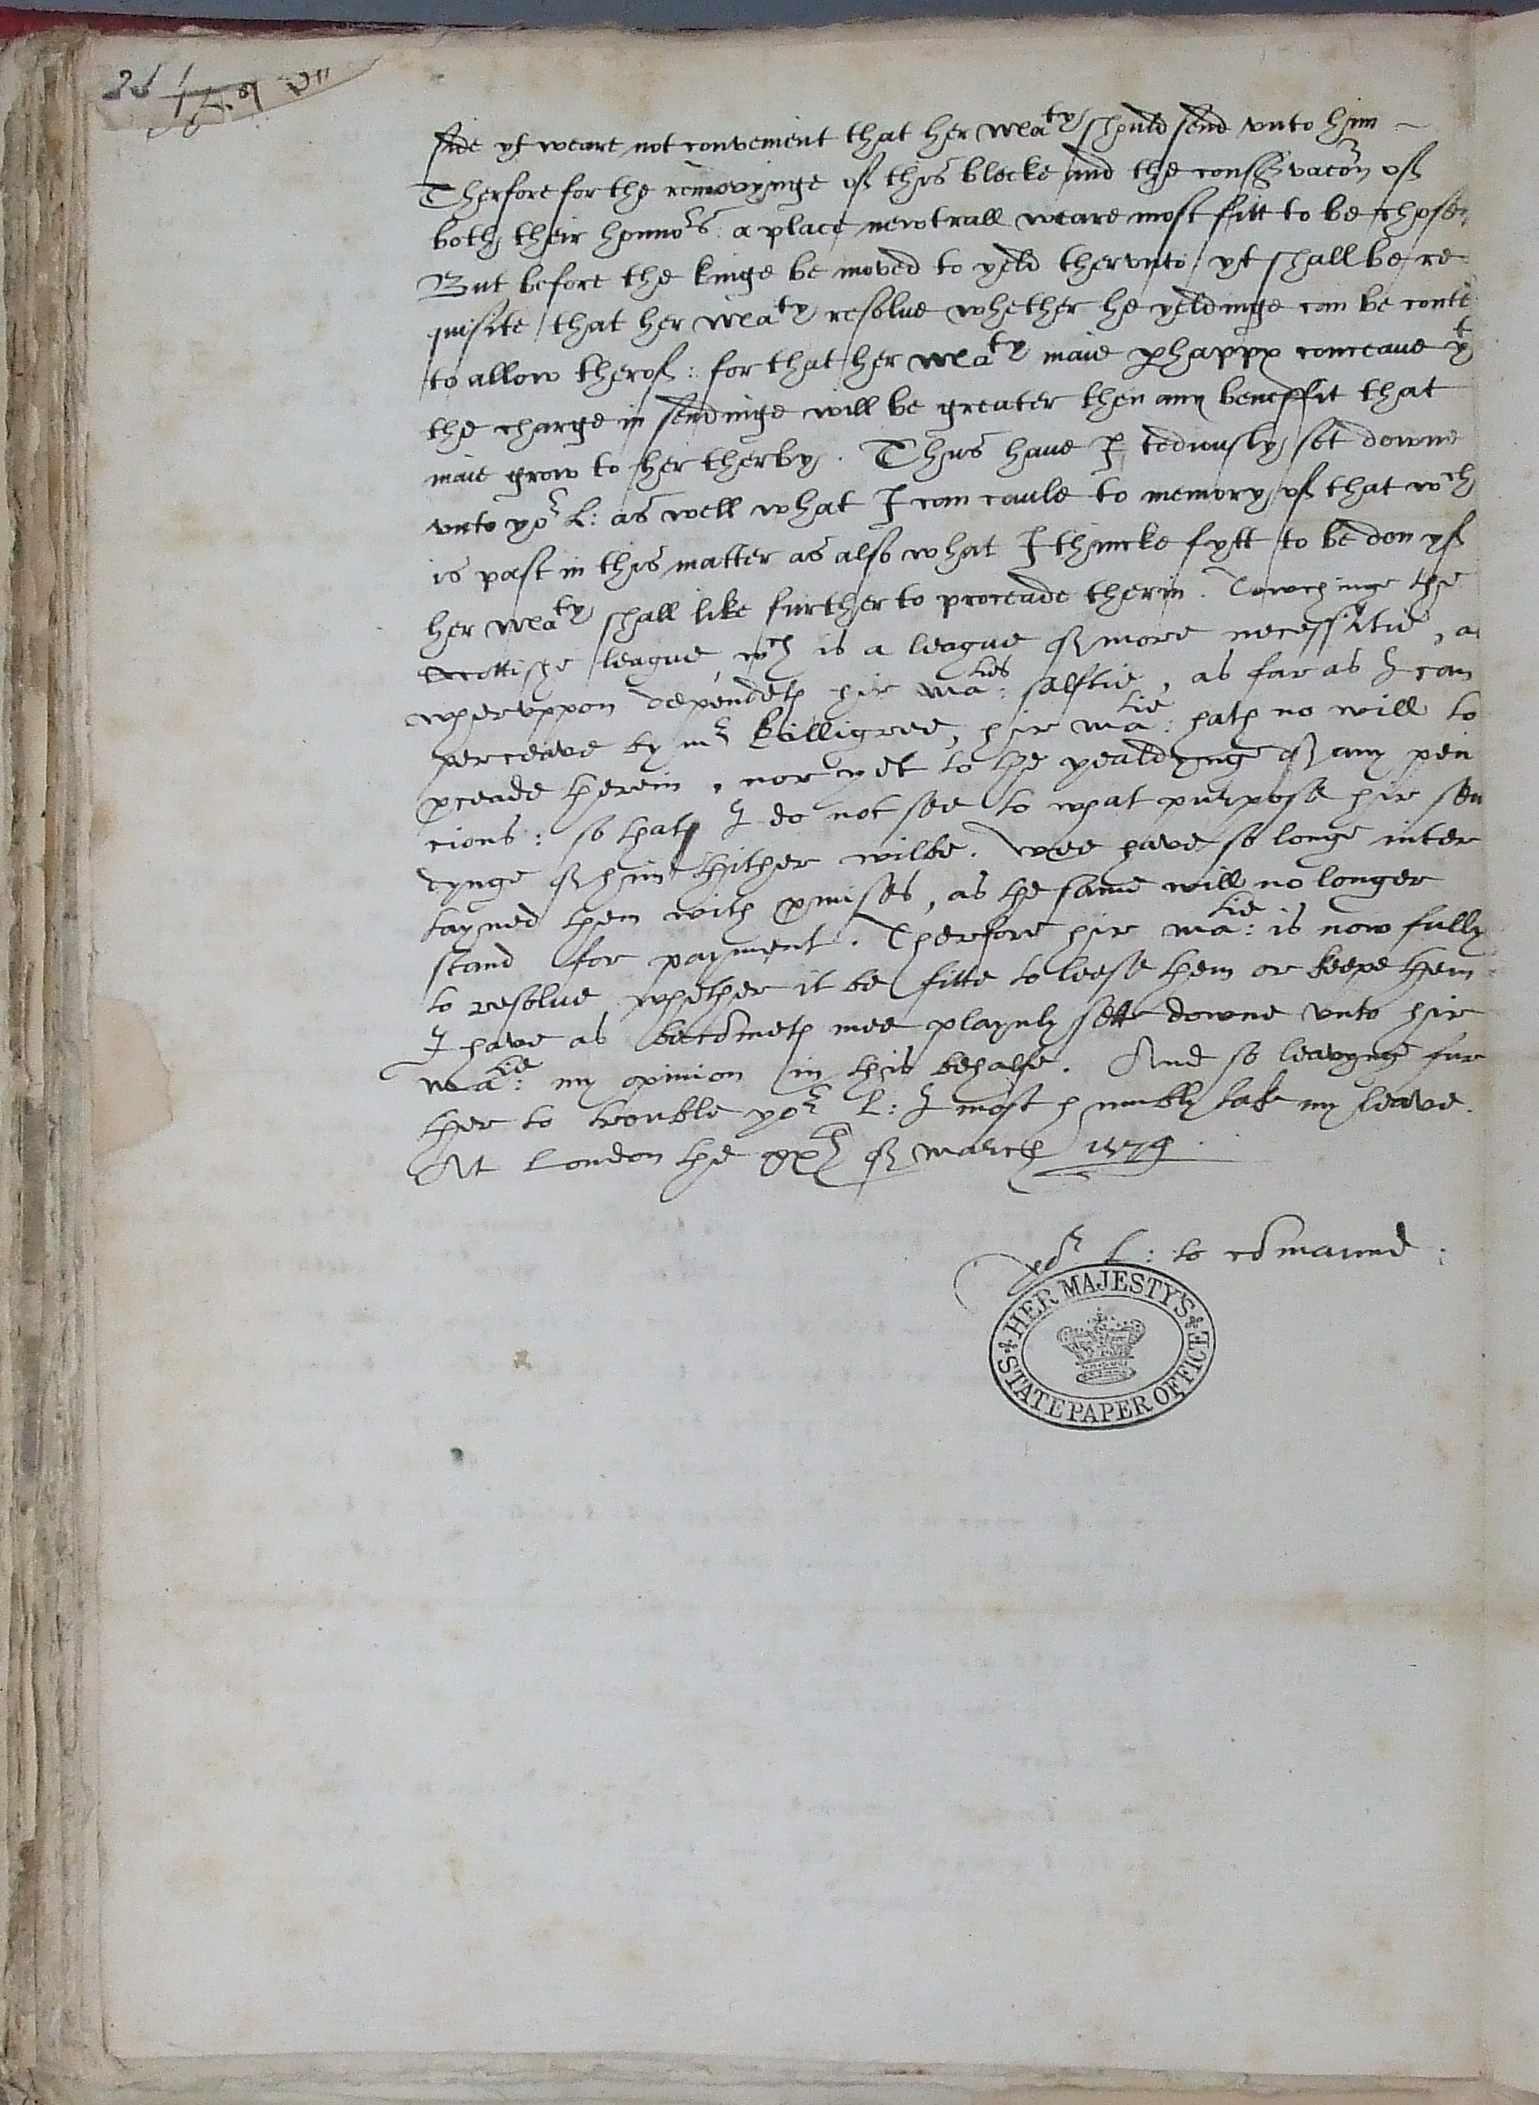 side yt weare not convenient that her Maty should send vnto him
Therfore for the removynge of this blocke and the conservacon of
both their honnors a place newtrall weare most fitt to be chosen
But before the kinge be moved to yeld thervnto yt shall be re
quisite that her Maty resolve whether he yeldinge can be contē
to allow therof: for that her Maty maie phappx conceaue yt
the charge in sendinge will be greater then any beneffit that
maie grow to her therby. Thus haue I tediously set downe
vnto yor L: as well what I can caule to memory of that wch
is past in this matter as also what I thincke fytt to be don yf
her Maty shall like further to proceade therin. Towchinge the
Scottishe league, wch is a league of more necessitie, as
wheruppon dependeth hir Maties: salftie, as far as I can
perceave by mr Killigree, hir Matie: hath no will to
pceade herein, nor yet to the yealdynge of any pen
cions: so that I do not see to what purpose hir sen
dynge of him thither wilbe. Wee have so longe inter
tayned them with pmises, as the same will no longer
stand for payment. Therfore hir Matie: is now fully
to resolve whether it be fitte to leese them or keepe them
I have as becōmeth mee playnly sett downe vnto hir
Matie: my opinion in this behalfe. And so leavynge fur
ther to trouble yor L: I most humbly take my leave.
At London the xxth of March 1574.
yor L: to cōmaund:
HER MAJESTY'S
STATE PAPER OFFICE